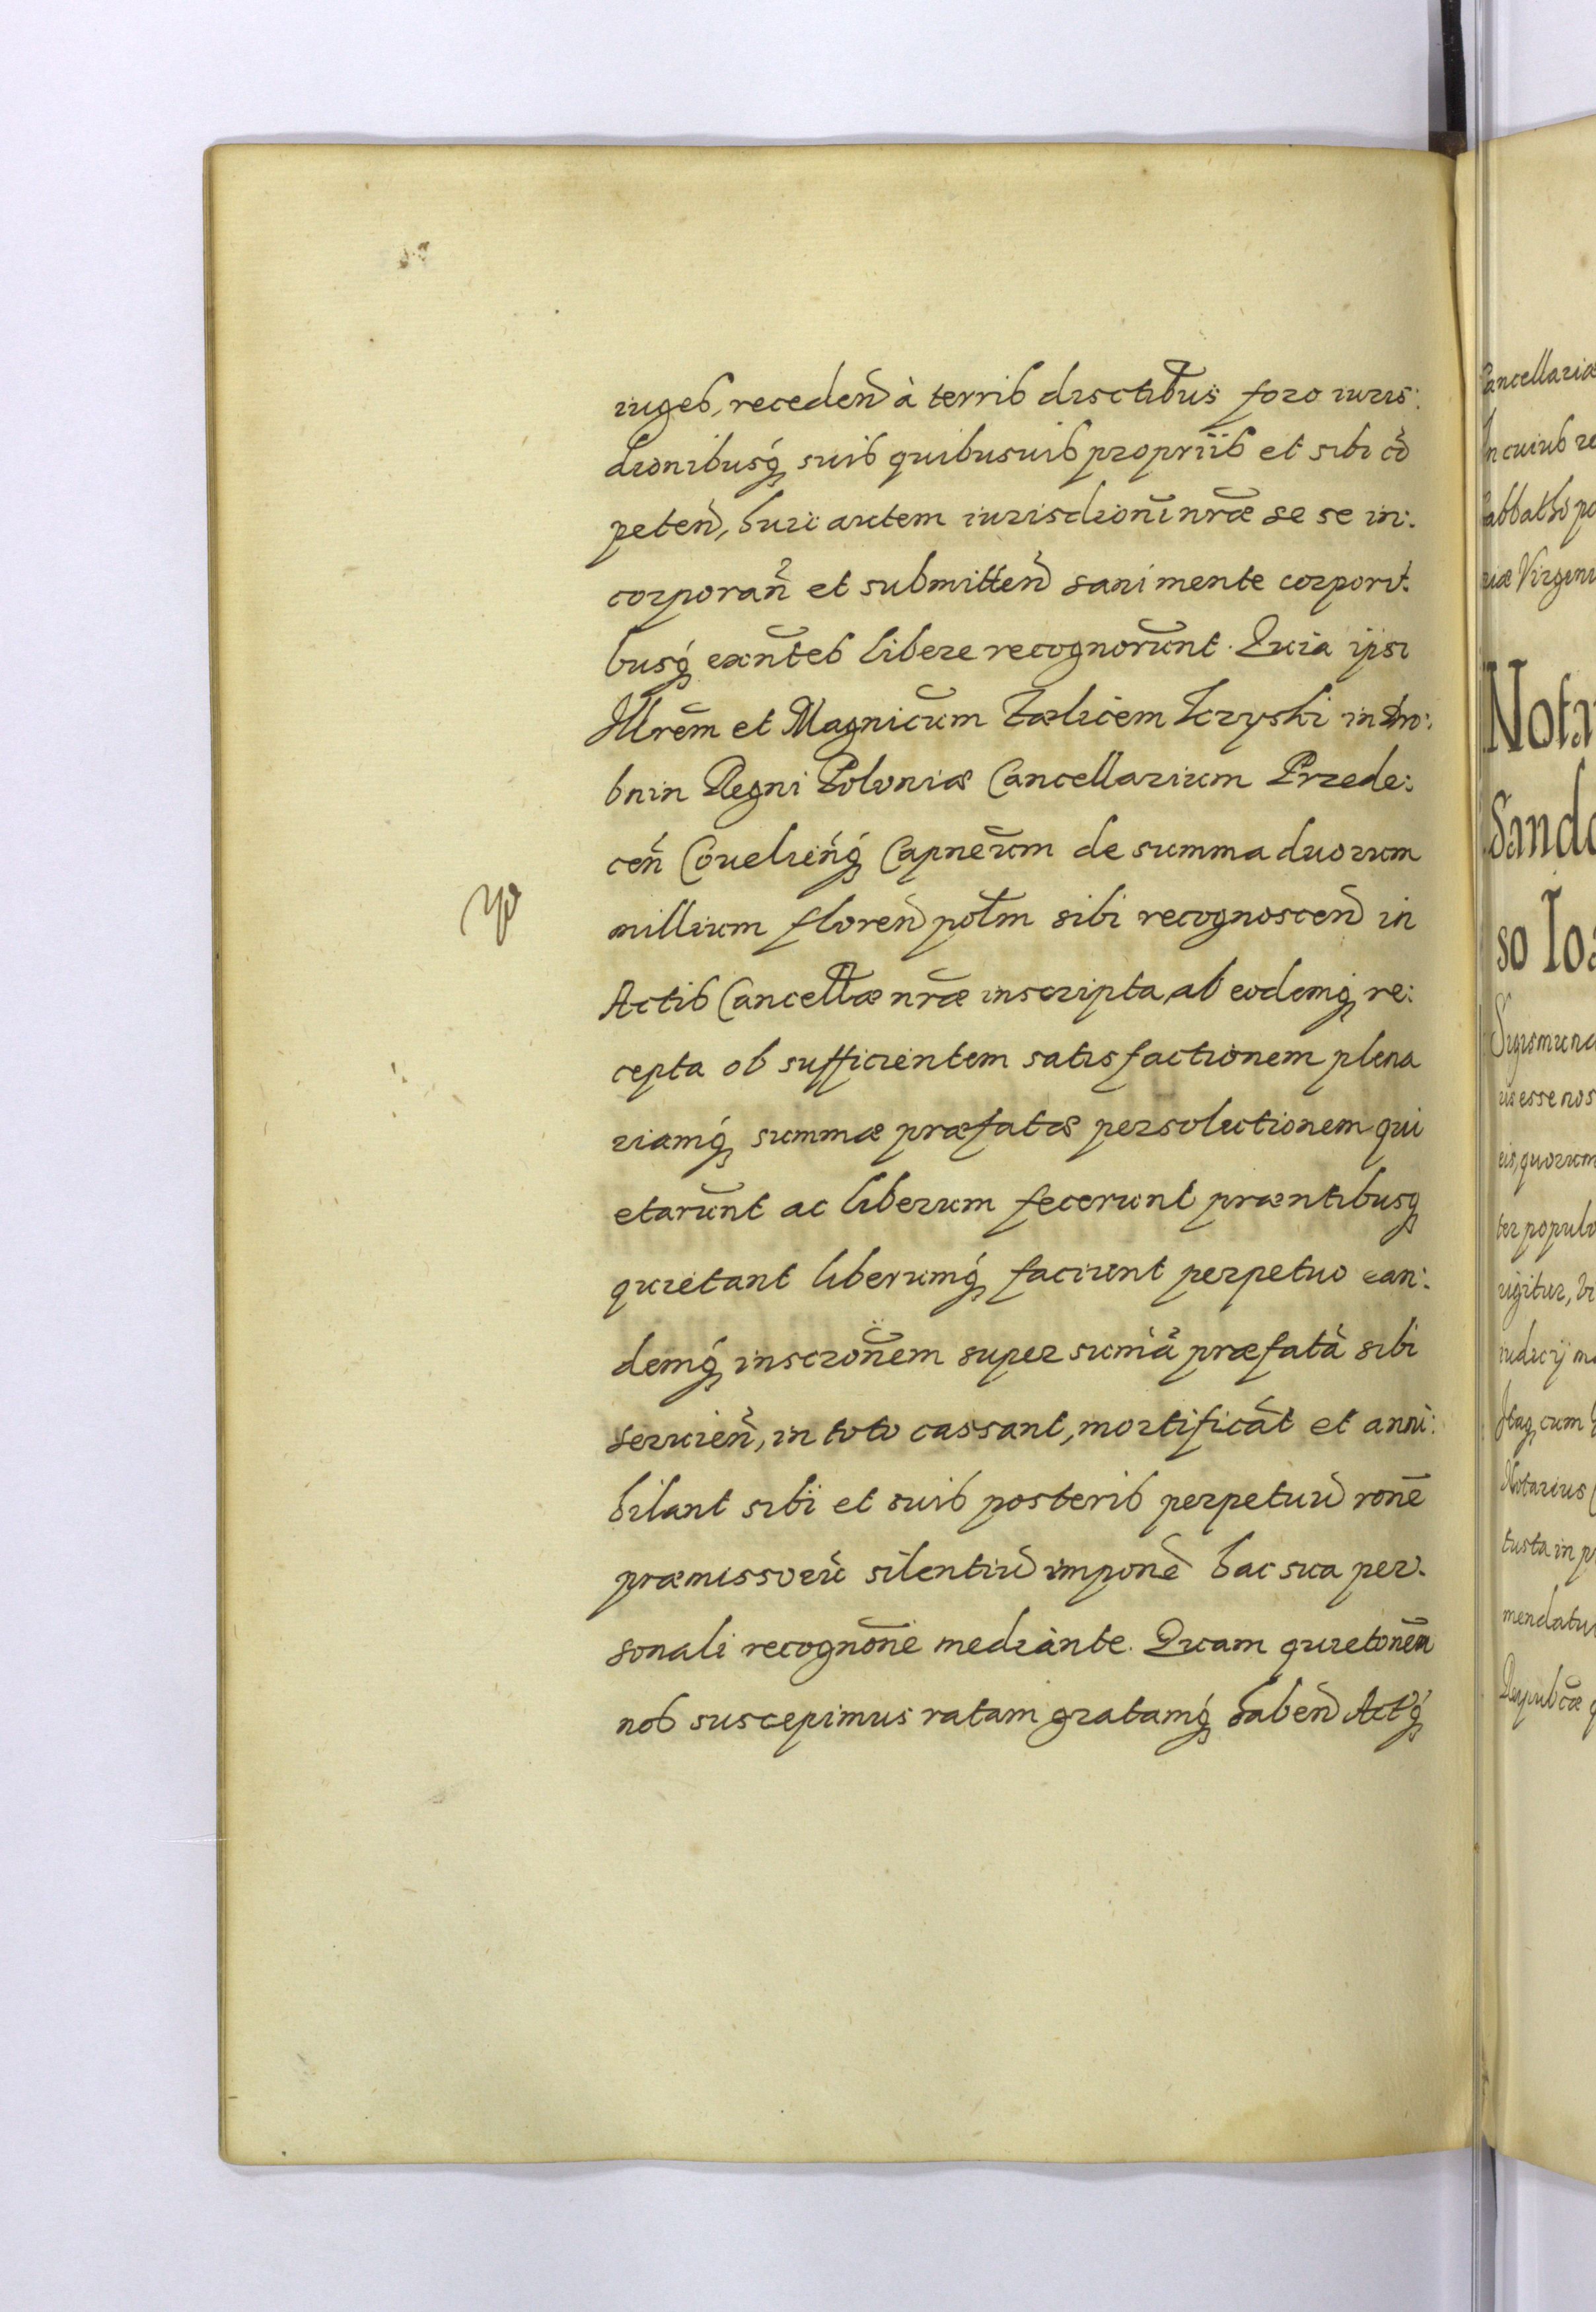 iuges, recedeñ à terris disctibus foro iuris:
dionibusq́ suis quibusuis propriis et sibi cõ
peteñ, huic autem iurisdioni nrae se se in:
corporañ et submitteñ sani mente corpori:
busq́ exñtes libere recognorunt. Quia ipsi
Illrem et Magnicum Foelicem Kryski in Dro:
bnin Regni Poloniae Cancellarium Przede:
ceñ Couelieñq́ Capneum de summa duorum
millium floreñ polm sibi recognosceñ in
Actis Cancellae nrae inscripta, ab eodemq́ re:
cepta ob sufficientem satisfactionem plena
riamq́ summae praefatae persolutionem qui
etarunt ac liberum fecerunt praentibusq́
quietant liberumq́ faciunt perpetuo ean:
demq́ inscronem super sumã praefatã sibi
seruieñ, in toto cassant, mortificãt et anni:
hilant sibi et suis posteris perpetuũ rone
praemissorũ silentiũ imponẽ hac sua per:
sonali recognone mediante. Quam quietonem
nos suscepimus ratam gratamq́ habeñ Actq́
Cancellariae
In cuius re
Sabbatho po
riae Virgini
Nota
Sando
so Ioa
Sigismund
is esse nos
eis, quorum
ter populo
rigitur,
iudicij
Itaq́ cum
Notarius
tusta in p
mendatu
Reipublcae